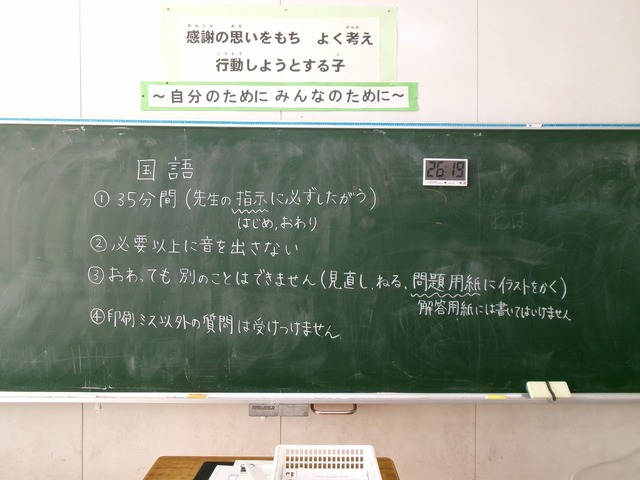 感謝の思いをもち よく考え
行動しようとする子
～自分のために みんなのために～
26:19
国語
① 35分間 (先生の指示に必ずしたがう)
はじめ, おわり
② 必要以上に音を出さない
③ おわっても 別のことはできません (見直し, ねる, 問題用紙にイラストをかく)
解答用紙には書いてはいけません
④ 印刷ミス以外の質問は受けつけません.